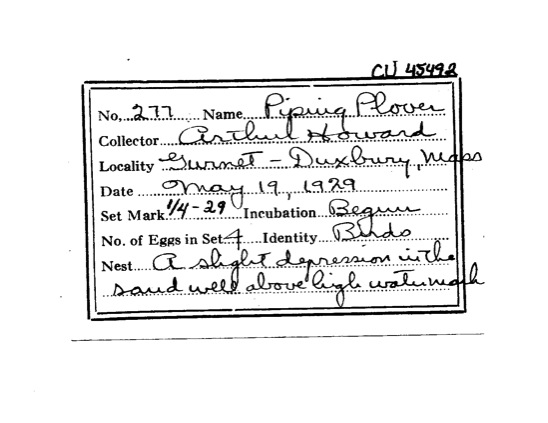 CU 45492
No. 277 Name Piping Plover
Collector Arthur Howard
Locality Gurnet - Duxbury, Mass
Date May 19, 1929
Set Mark 1/4-29 Incubation Begun
No. of Eggs in Set 4 Identity Birds
Nest A slight depression in the
sand well above high water mark